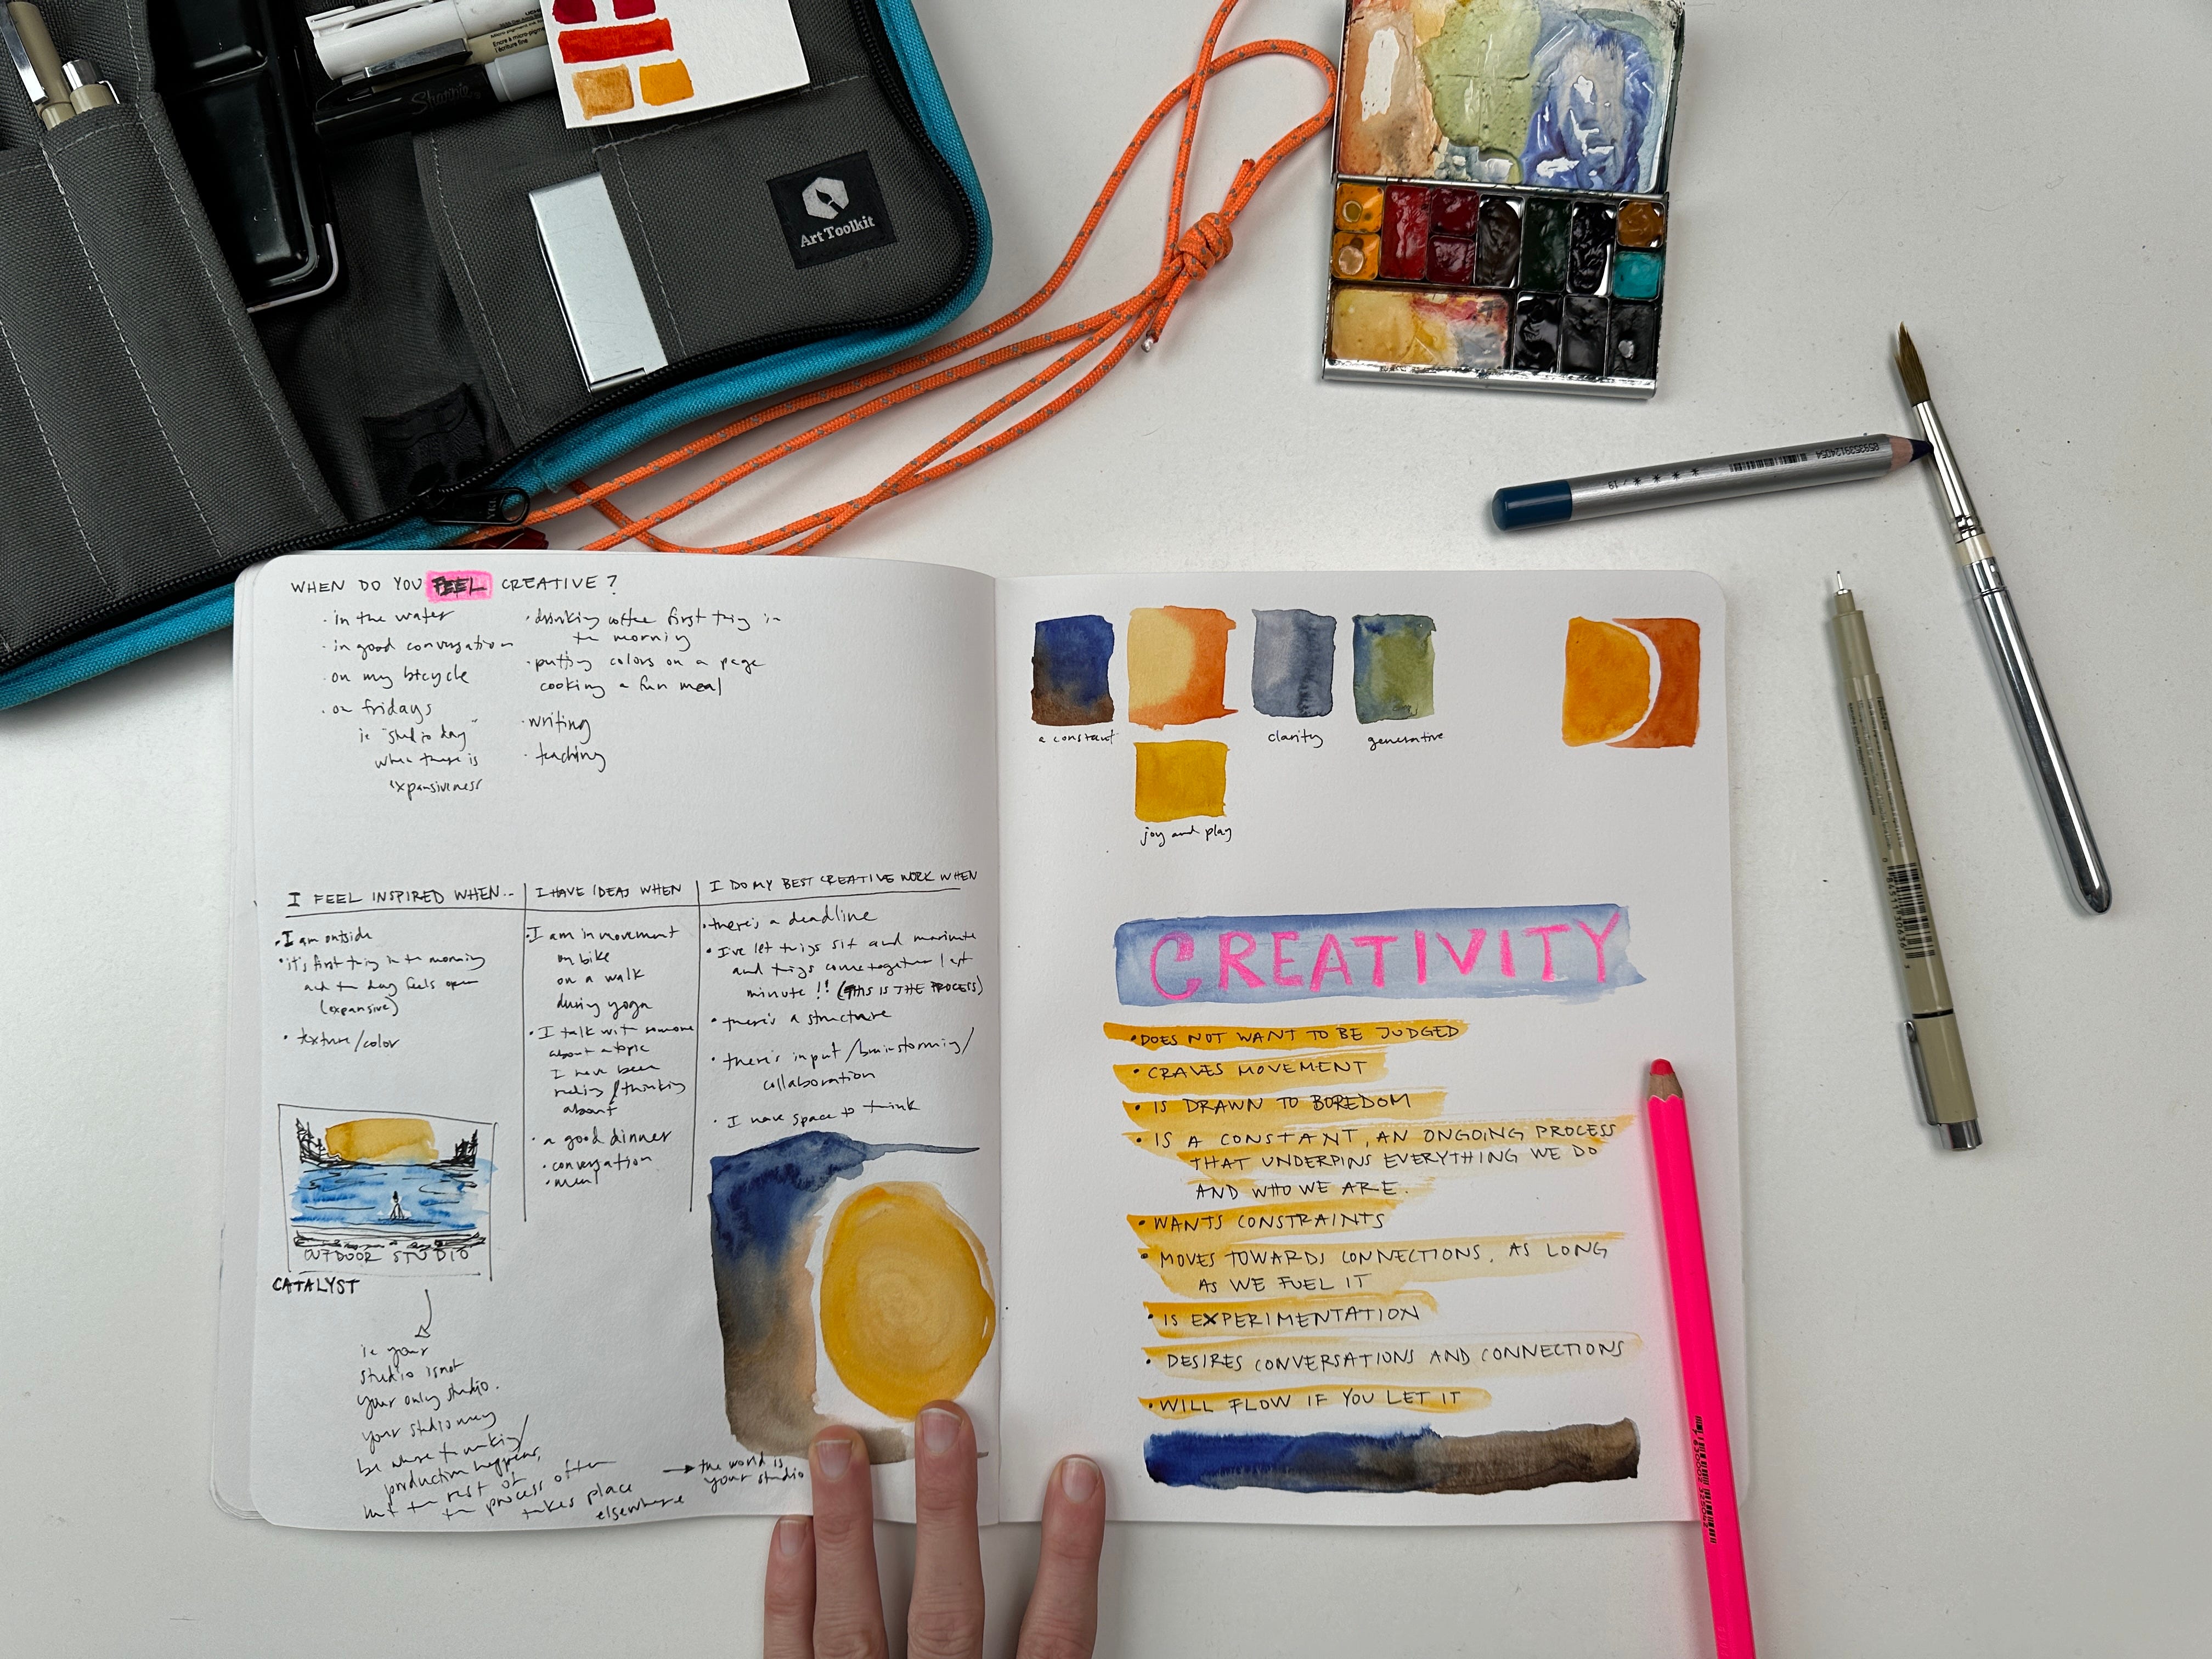 Sharpie
Art Toolkit
WHEN DO YOU FEEL CREATIVE?
· in the water
· in good conversation
· on my bicycle
· on fridays
ie "studio day"
when there is
expansiveness
· drinking coffee first thing in
the morning
· putting colors on a page
cooking a fun meal
· writing
· teaching
I FEEL INSPIRED WHEN...
· I am outside
· it's first thing in the morning
and the day feels open
(expansive)
· texture/color
I HAVE IDEAS WHEN
· I am in movement
on bike
on a walk
during yoga
· I talk with someone
about a topic
I have been
reading/thinking
about
· a good dinner
· conversation
· meal
I DO MY BEST CREATIVE WORK WHEN
· there's a deadline
· I've let things sit and marinate
and things come together last
minute!! (THIS IS THE PROCESS)
· there's a structure
· there's input/brainstorming/
collaboration
· I have space to think
OUTDOOR STUDIO
CATALYST
ie your
studio isnot
your only studio.
your studio may
be where the making/
production happens,
but the rest of
the process often
takes place
elsewhere
→ the world is
your studio
a constant
clarity
generative
joy and play
CREATIVITY
· DOES NOT WANT TO BE JUDGED
· CRAVES MOVEMENT
· IS DRAWN TO BOREDOM
· IS A CONSTANT, AN ONGOING PROCESS
THAT UNDERPINS EVERYTHING WE DO
AND WHO WE ARE.
· WANTS CONSTRAINTS
· MOVES TOWARDS CONNECTIONS, AS LONG
AS WE FUEL IT
· IS EXPERIMENTATION
· DESIRES CONVERSATIONS AND CONNECTIONS
· WILL FLOW IF YOU LET IT